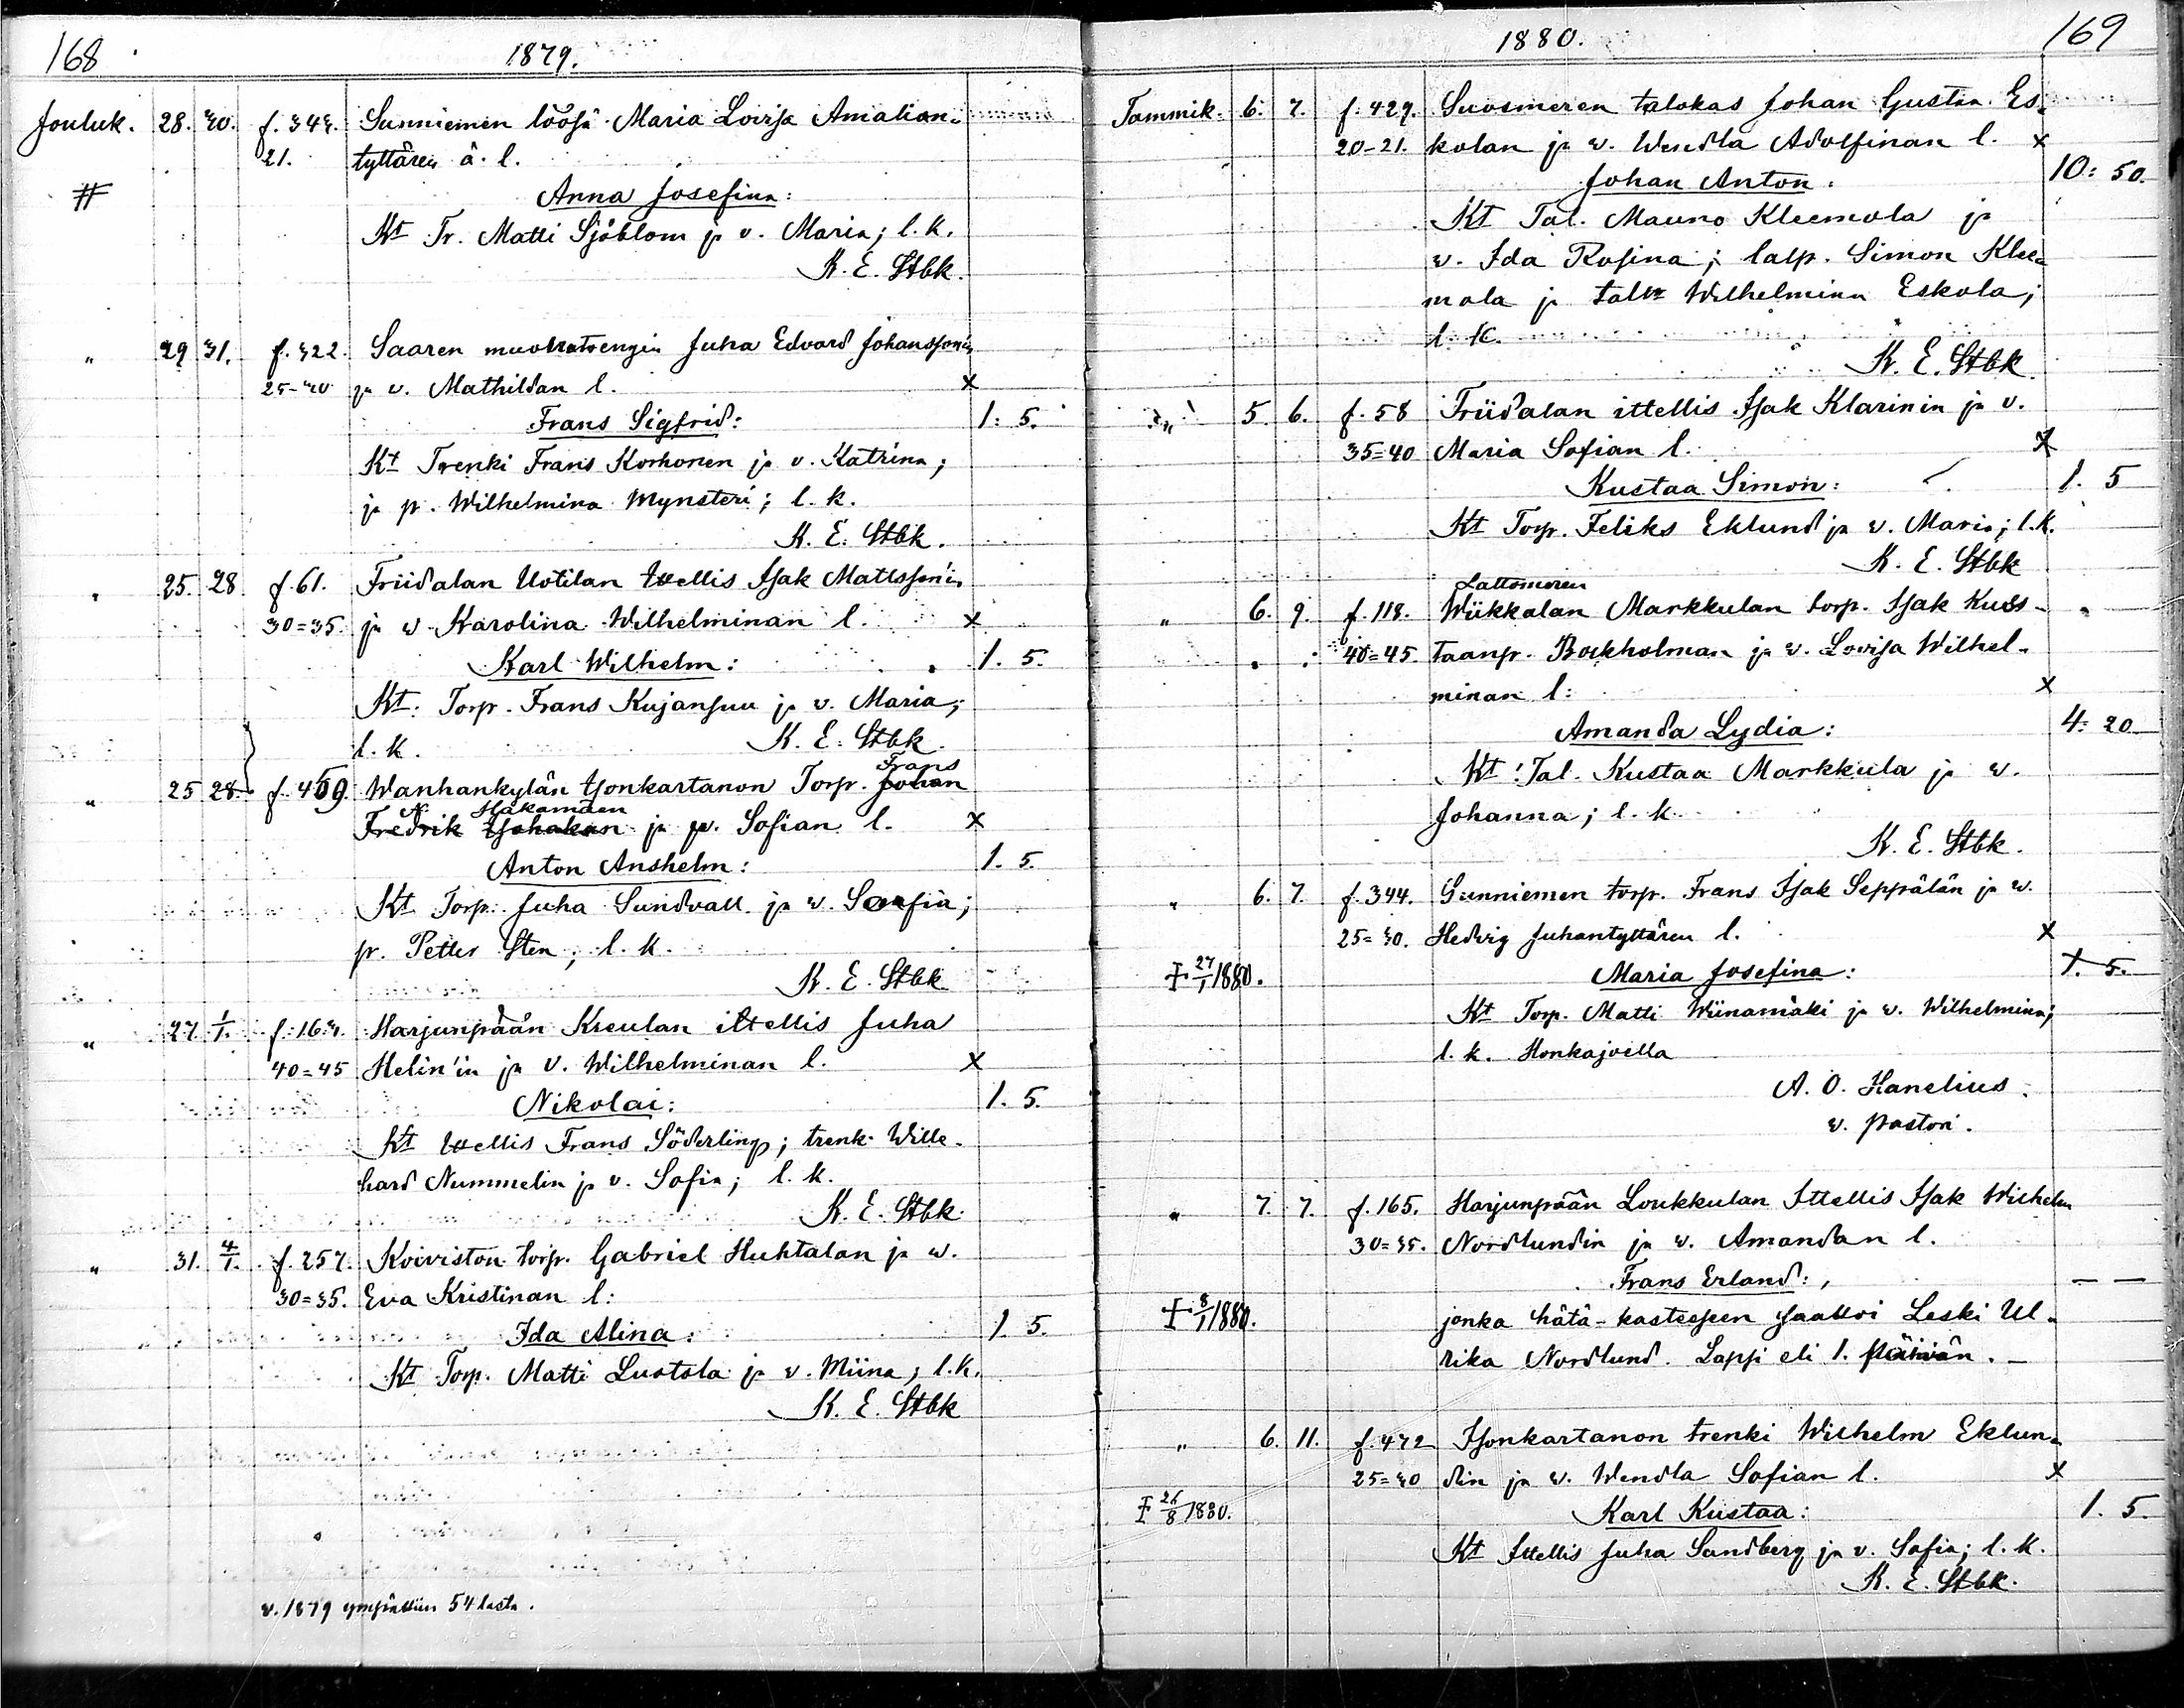 168
1879.
Jouluk. 28. 30. f. 343. Sunniemen löösä Maria Lovisa Amalian-
21. tyttären ä. l.
# Anna Josefina:
Kt Tr. Matti Sjöblom ja v. Maria; l. k.
K. E. Stbk.
" 29 31. f. 322. Saaren muonatrengin Juha Edvard Johanssonin
25-30 ja v. Mathildan l. x
Frans Sigfrid: 1. 5.
Kt Trenki Frans Korhonen ja v. Katrina;
ja p. Wilhelmina Mynsteri; l. k.
K. E. Stbk.
" 25. 28 f. 61. Friidalan Uotilan Itellis Isak Matsson'in
30=35. ja v. Karolina Wilhelminan l. x
Karl Wilhelm: 1. 5.
Kt: Torp. Frans Kujansuu ja v. Maria;
l. k. K. E. Stbk.
Frans
" 25 28. f. 459. Wanhankylän Isonkartanon Torp. Johan
Hakamäen
Fredrik Isohakan ja v. Sofian l. x
Anton Anshelm: 1. 5.
Kt Torp. Juha Sundvall ja v. Serafia;
p. Petter Sten; l. k.
K. E. Stbk
" 27. 1/1. f. 163. Harjunpään Kreulan ittellis Juha
40=45 Helin'in ja v. Wilhelminan l. x
Nikolai: 1. 5.
Kt Ittellis Frans Söderling; trenk. Wille-
hard Nummelin ja v. Sofia; l. k.
K. E. Stbk.
" 31. 4/1. f. 257. Koiviston torp. Gabriel Huhtalan ja w.
30=35. Eva Kristinan l:
Ida Alina: 1. 5.
Kt Torp. Matti Luotola ja v. Miina; l. k.
K. E. Stbk
v. 1879 ympättiin 54 lasta.
1880. 169
Tammik. 6. 7. f. 429. Suosmeren talokas Johan Gustaa Es-
20-21. kolan ja w. Wendla Adolfinan l. x
Johan Anton: 10: 50.
Kt Tal. Mauno Kleemola ja
w. Ida Rosina; talp. Simon Klee-
mola ja talt. Wilhelmina Eskola;
l. k.
K. E. Stbk.
" 5. 6. f. 58 Friidalan ittellis Isak Klarinin ja v.
35=40 Maria Sofian l. x
Kustaa Simon: 1. 5
Kt Torp. Feliks Eklund ja v. Maria; l. k.
K. E. Stbk
Lattomeren
" 6. 9. f. 118. Wiikkalan Markkulan torp. Isak Kus-
40=45. taanp. Bockholman ja v. Lovisa Wilhel-
minan l: x
Amanda Lydia: 4: 20
Kt: Tal. Kustaa Markkula ja w.
Johanna; l. k.
K. E. Stbk.
" 6. 7. f. 344. Sunniemen torp. Frans Isak Seppälän ja w.
25=30. Hedvig Juhantyttären l. x
‡ 27/1 1880. Maria Josefina: 1. 5.
Kt Torp. Matti Wiinamäki ja w. Wilhelmina;
l. k. Honkajoella
A. O. Hanelius.
v. pastori.
" 7. 7. f. 165. Harjunpään Loukkulan Ittellis Isak Wilhelm
30=35. Nordlundin ja w. Amandan l.
Frans Erland: — —
‡ 8/1 1880. jonka hätä-kasteeseen saattoi Leski Ul-
rika Nordlund. Lapsi eli 1. päivän. —
" 6. 11. f. 472 Isonkartanon trenki Wilhelm Eklun-
25=30 din ja w. Wendla Sofian l. x
‡ 26/8 1880. Karl Kustaa: 1. 5.
Kt Ittellis Juha Sandberg ja v. Sofia; l. k.
K. E. Stbk.